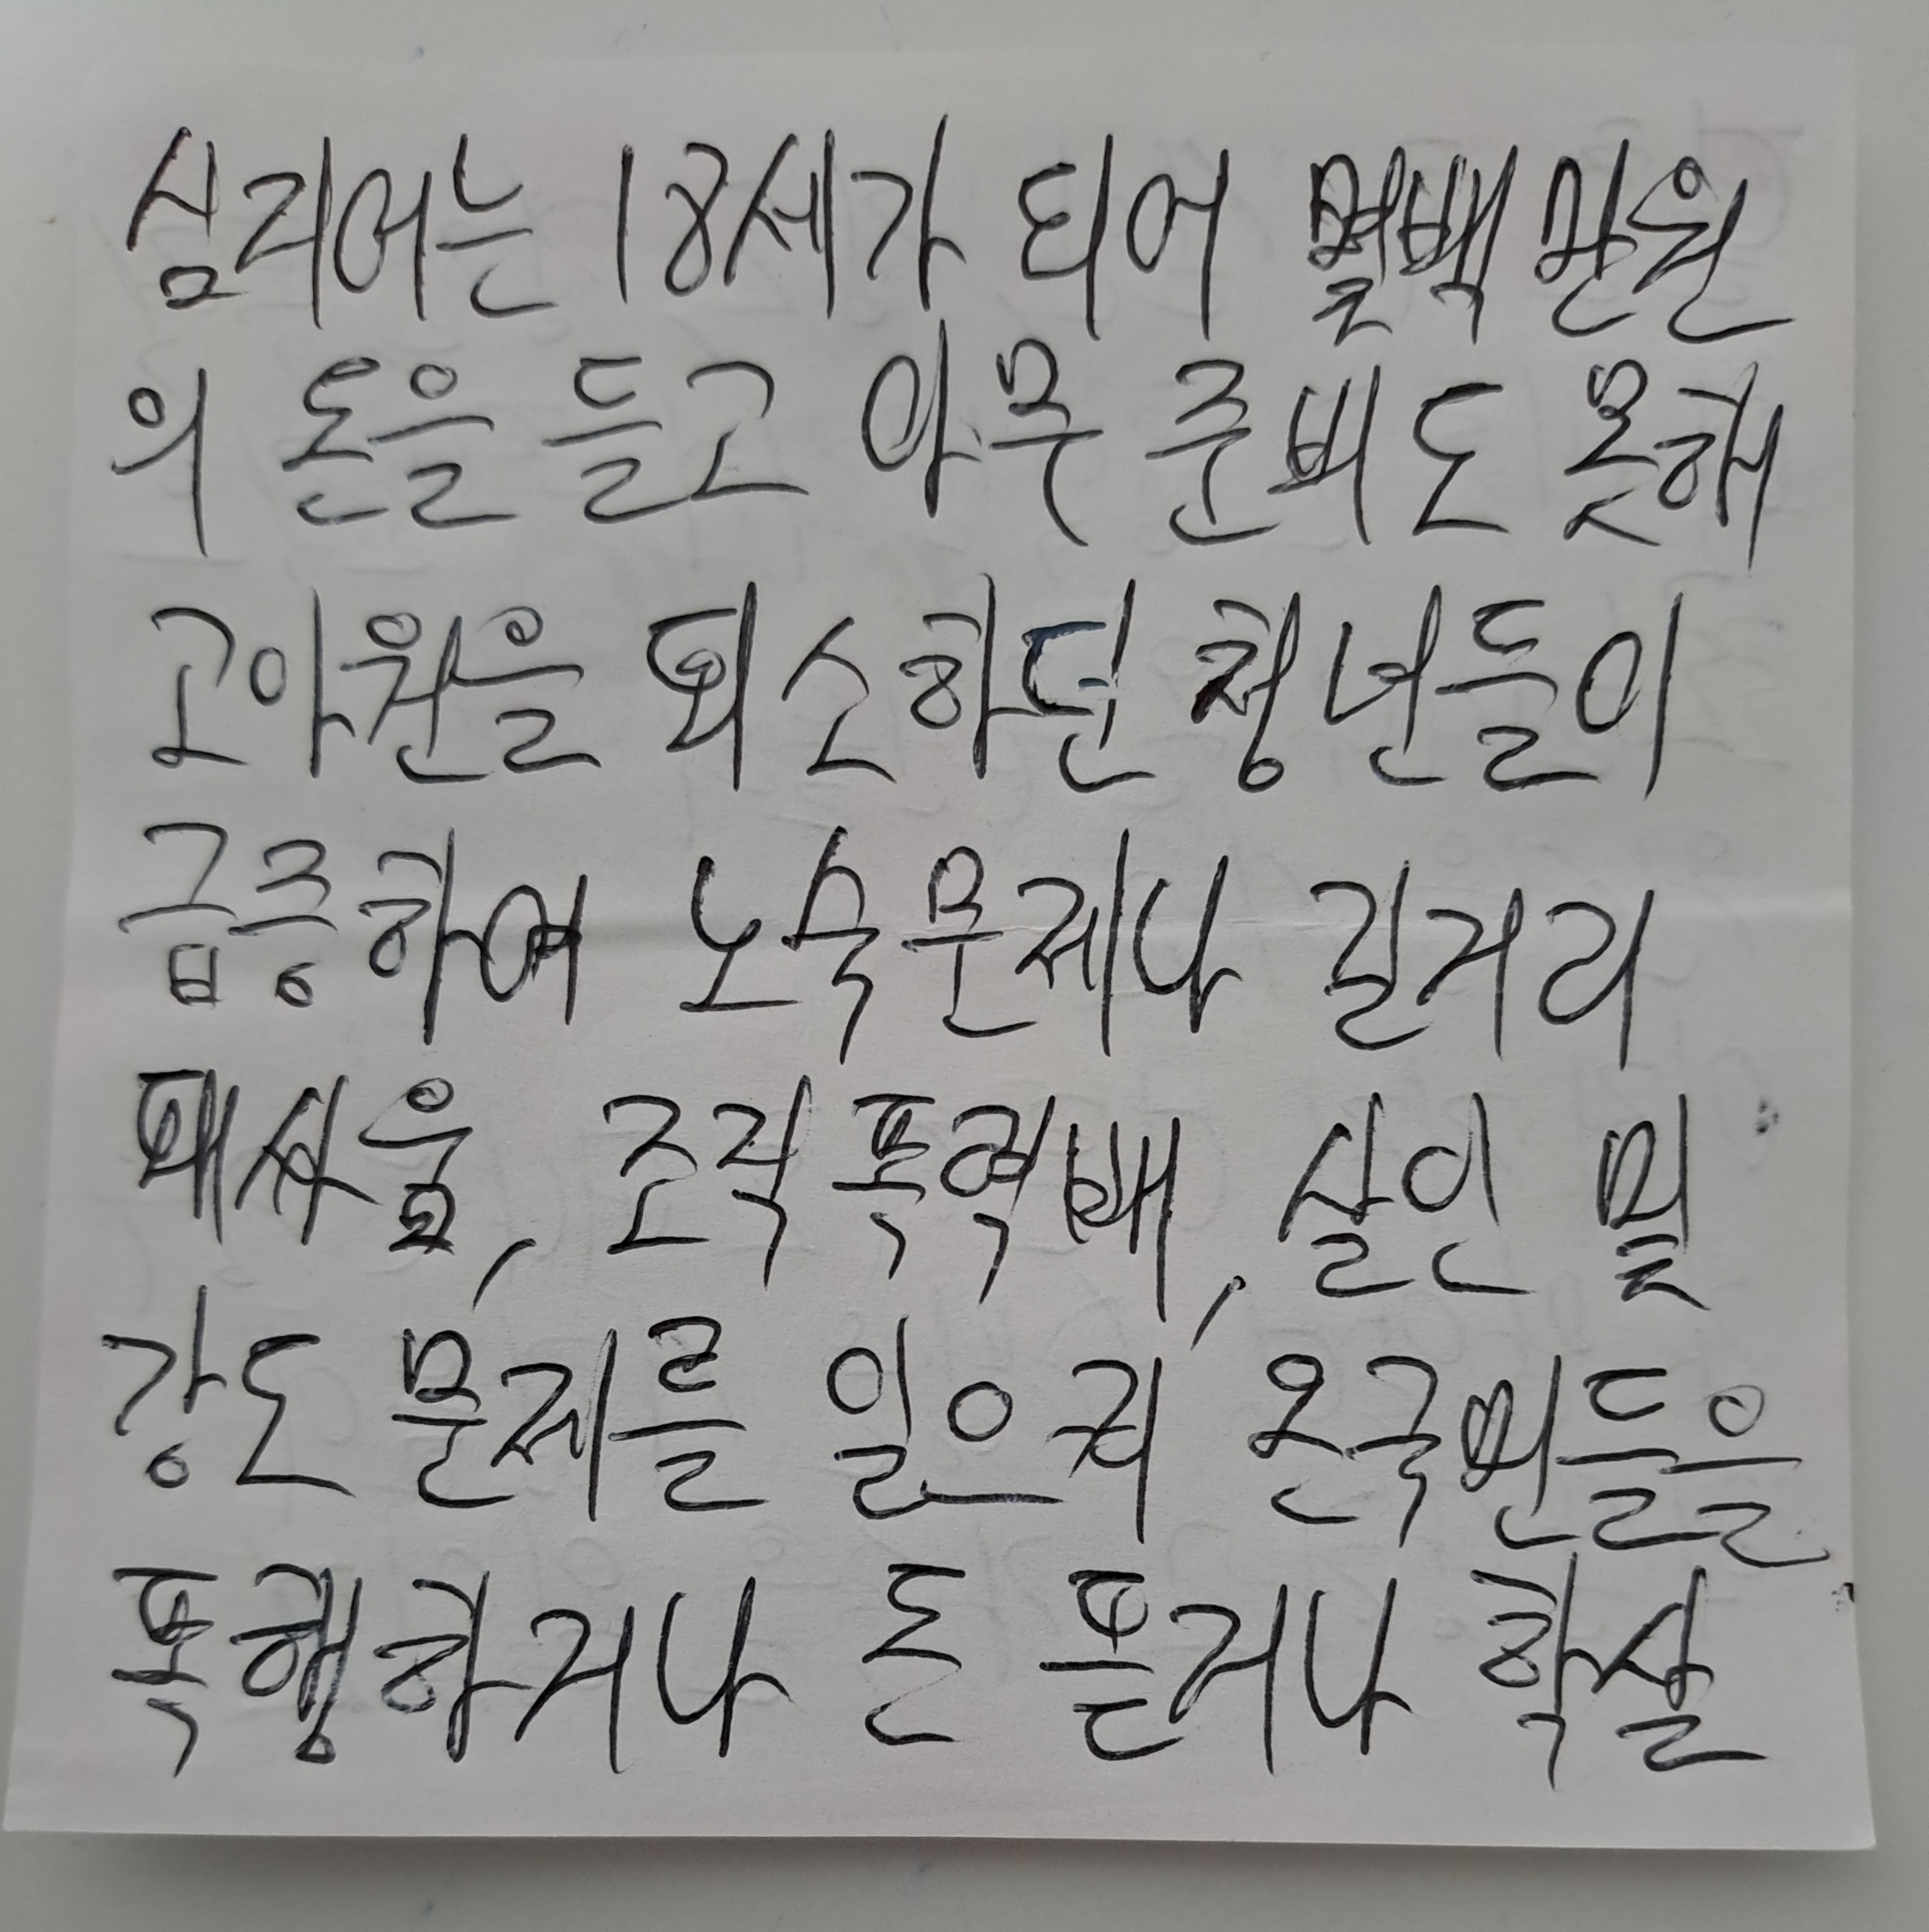 심지어는 18세가 되어 몇백만원
의 돈을 들고 아무 준비도 못해
고아원을 퇴소하던 청년들이
급증하여 노숙문제나 길거리
패싸움, 조직폭력배, 살인 및
강도 문제를 일으켜 온국민들을
폭행하거나 돈 뜯거나 학살